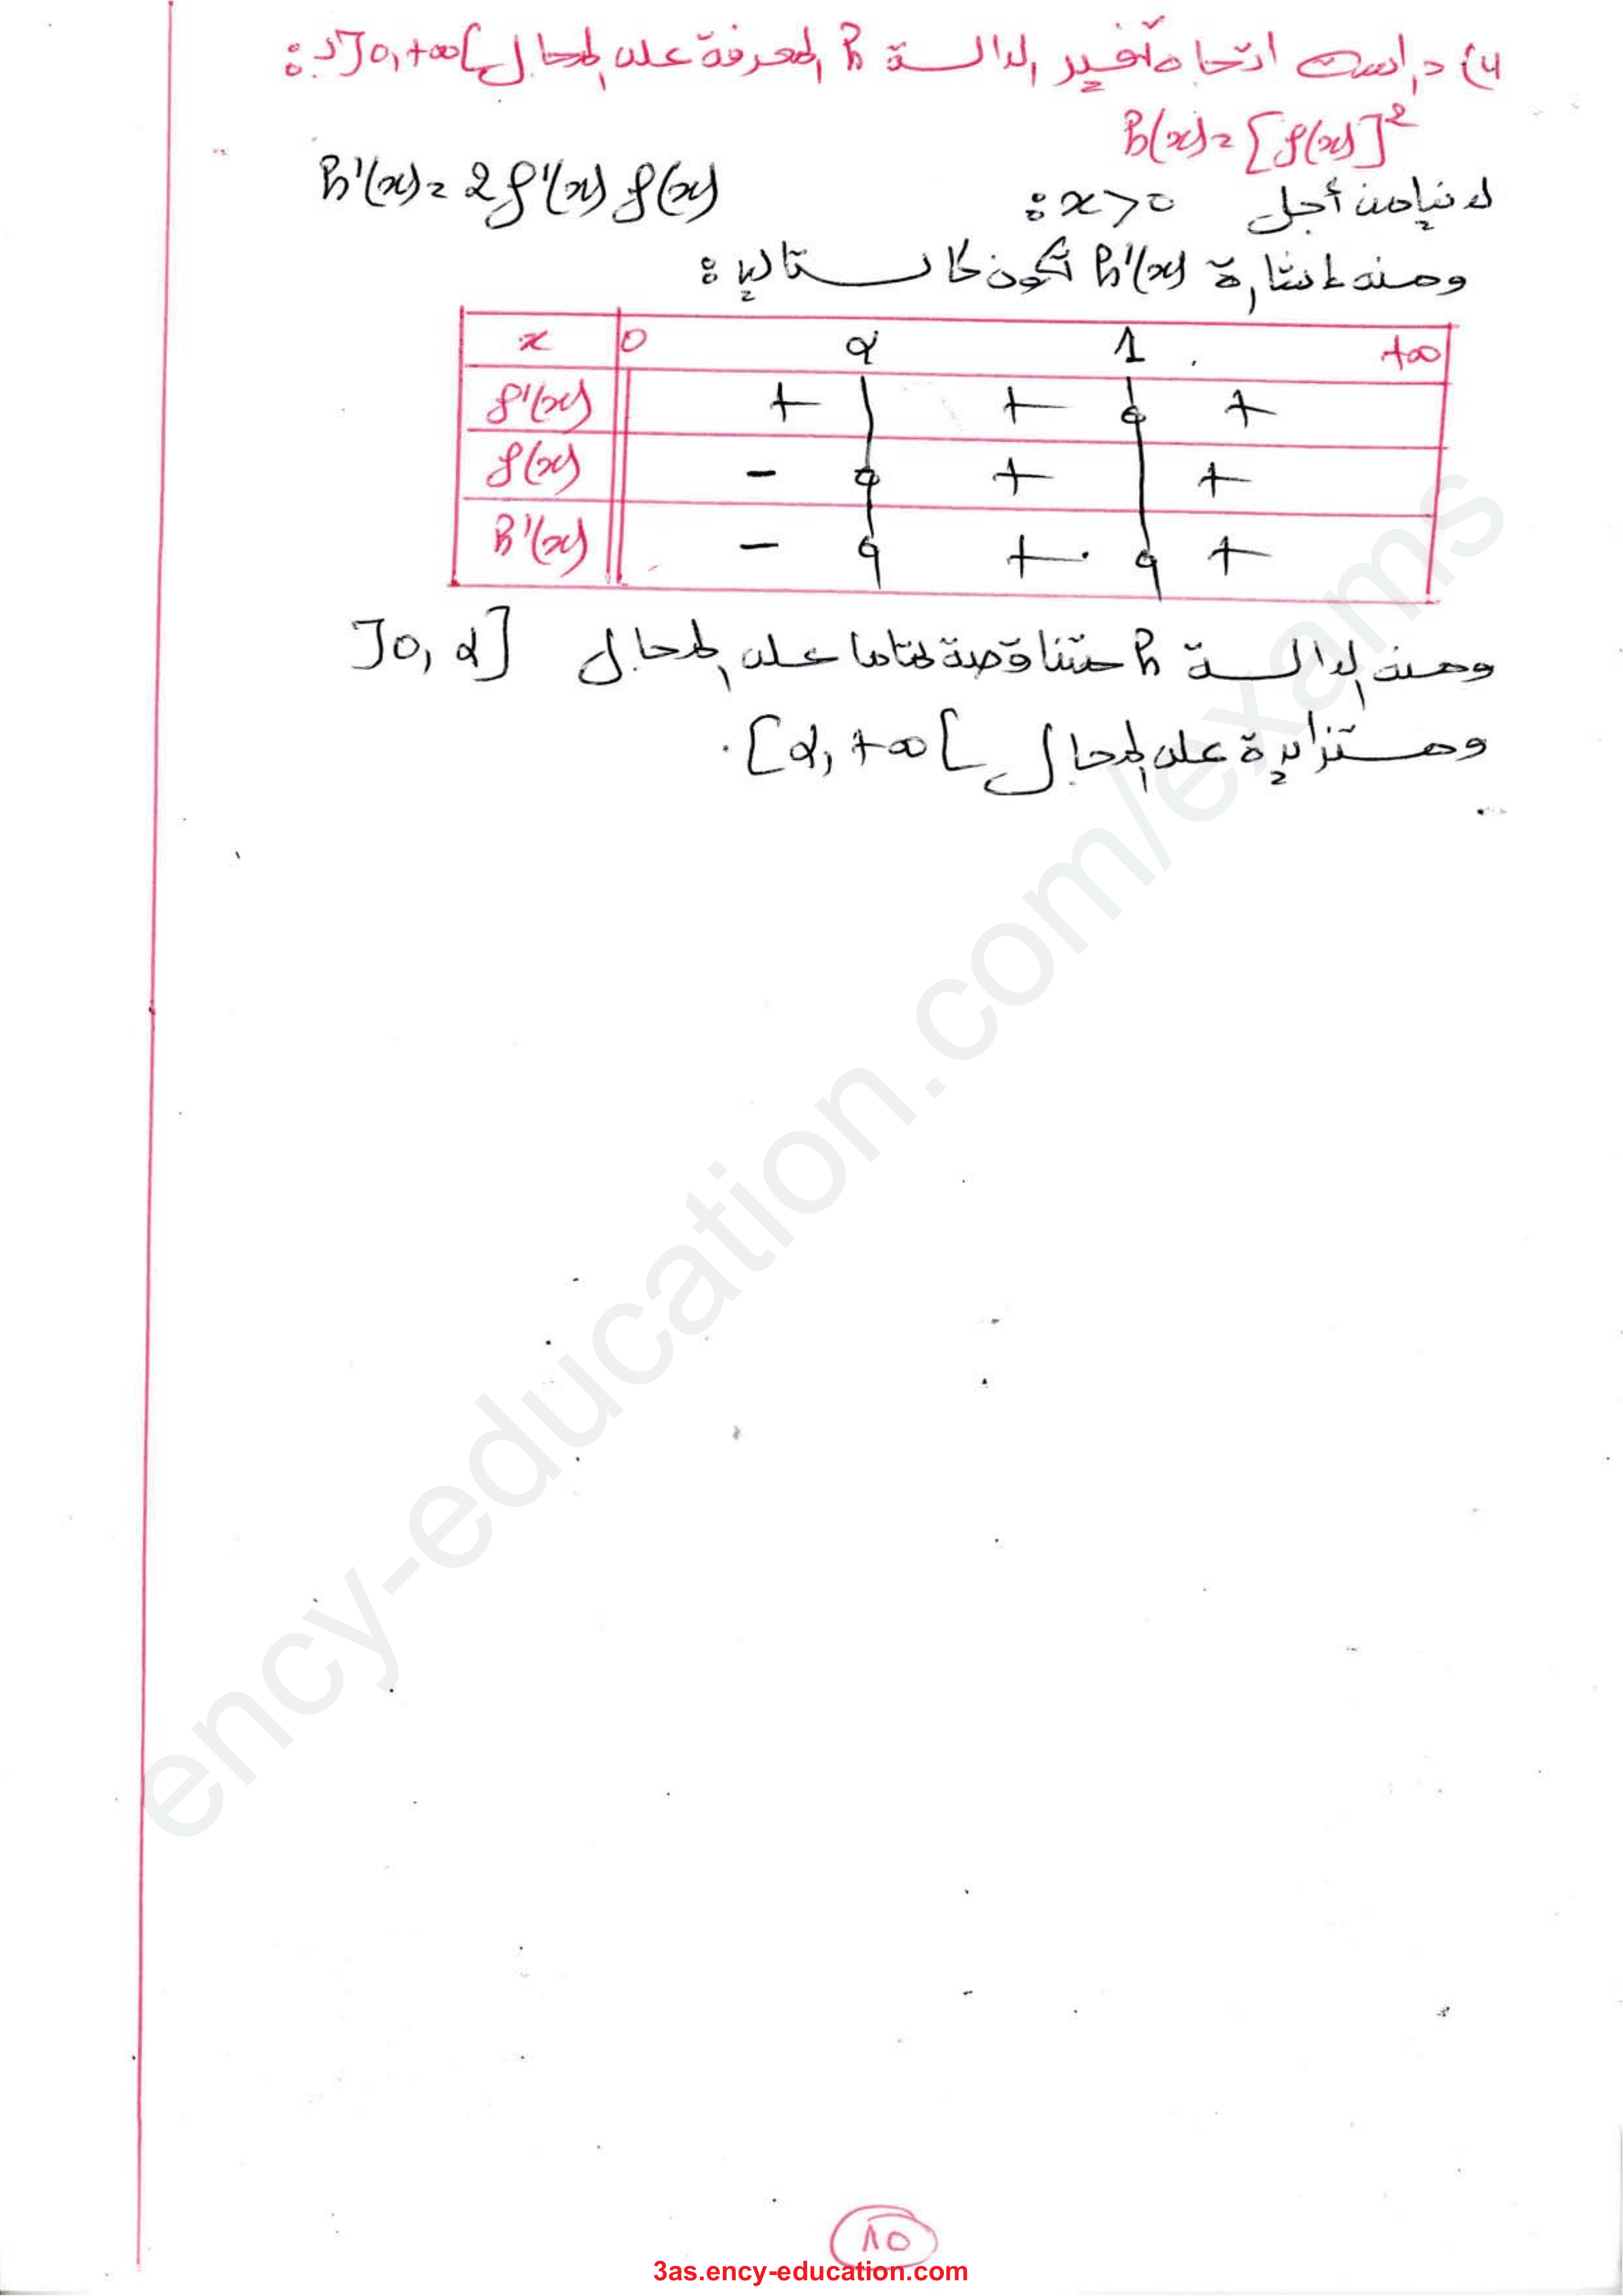 4) دراسة اتجاه تغير الدالة h المعرفة على المجال ]0,+∞[ بـ:
h(x) = [f(x)]²
لدينا من أجل x>0 : h'(x) = 2f'(x) f(x)
ومنه إشارة h'(x) تكون كالتالي:
x 0 α 1 +∞
f'(x) + + 0 +
f(x) - 0 + +
h'(x) - 0 + 0 +
ومنه الدالة h متناقصة تماما على المجال ]0, α]
ومتزايدة على المجال [α, +∞[.
10
3as.ency-education.com
ency-education.com/exams